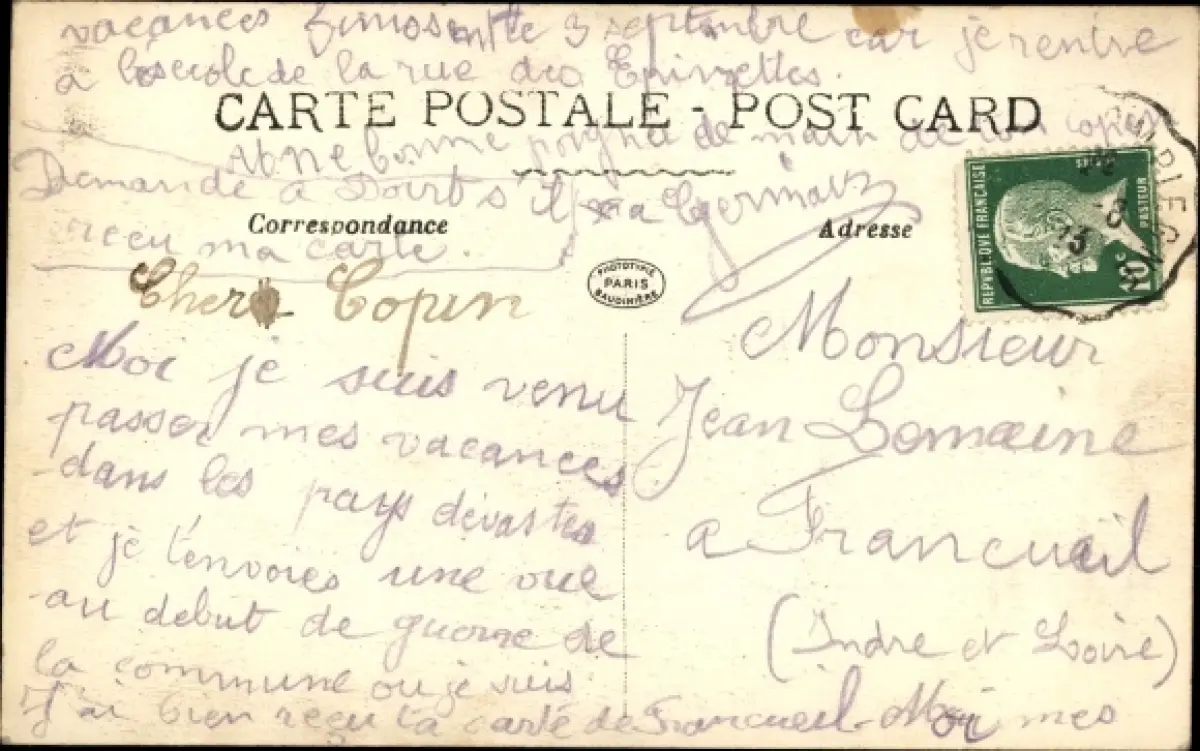 vacances finissent le 3 septembre car je rentre
a l'école de la rue des Epinettes.
CARTE POSTALE - POST CARD
une bonne poignée de main de ton copin
Demande à s'il a Germain
reçu ma carte.
Correspondance
Adresse
REPVBLIQVE FRANÇAISE
PASTEUR
10c
PHOTOTYPIE
PARIS
BAUDINIÈRE
Cher Copin
Moi je suis venu
passer mes vacances
dans les pays dévastés
et je t'envoies une vue
au debut de guerre de
la commune ou je suis
J'ai bien reçu ta carte de Francueil. Moi mes
Monsieur
Jean Lemaine
a Francueil
(Indre et Loire)